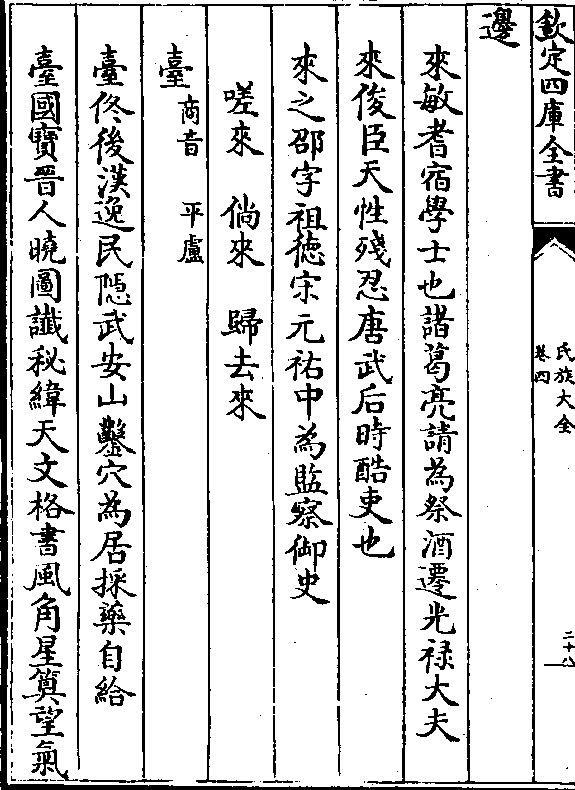 欽定四庫全書
氏族大全
卷四
二十八
邊
來敏耆宿學士也諸葛亮請為祭酒遷光祿大夫
來俊臣天性殘忍唐武后時酷吏也
來之邵字祖德宋元祐中為監察御史
嗟來　倘來　歸去來
臺商音　平盧
臺佟後漢逸民隱武安山鑿穴為居採藥自給
臺國寶晉人曉圖讖秘緯天文格書風角星算望氣